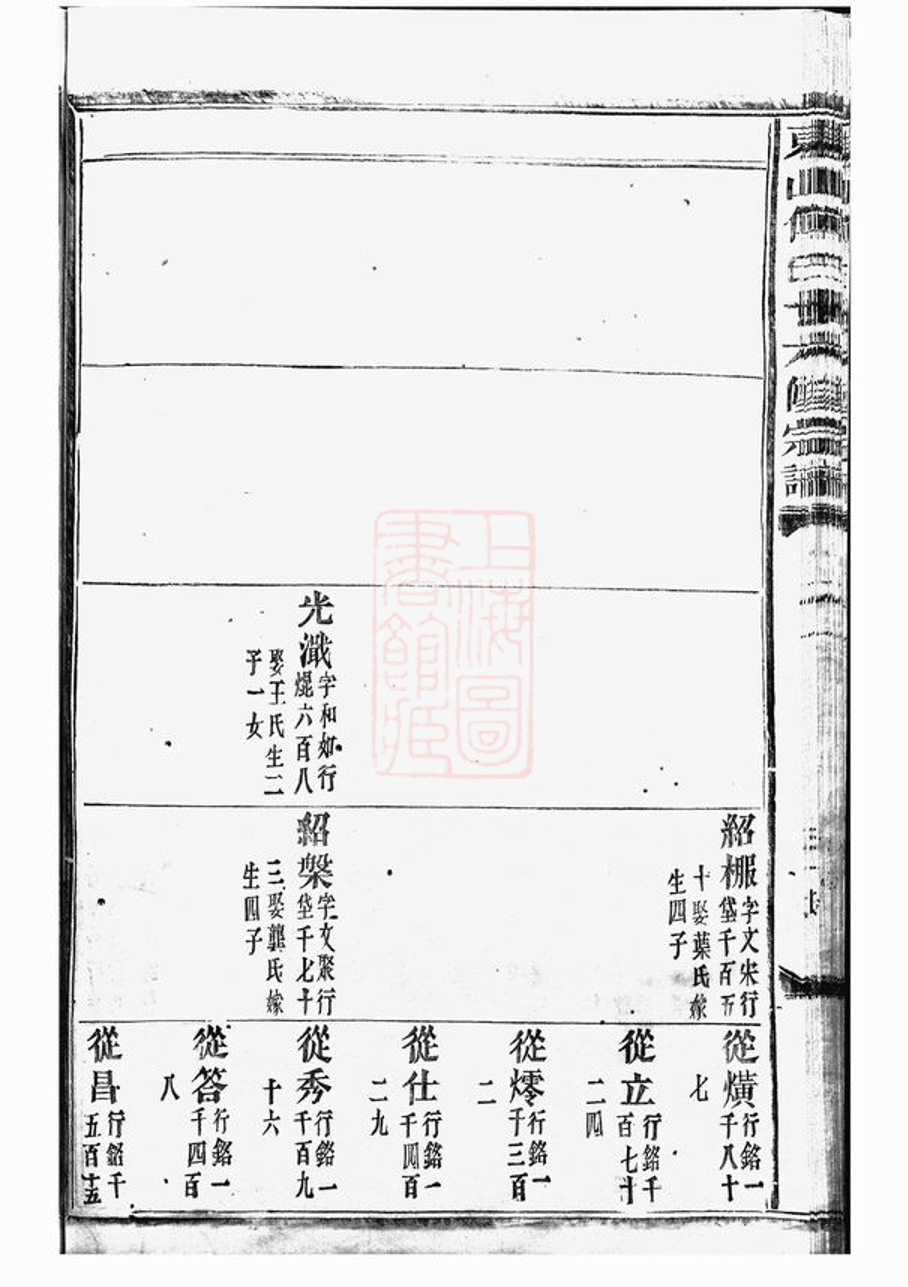 光濈 字和如行
焜六百八
娶王氏生二
子一女
紹棴 字文宋行
垡千百五
十娶葉氏嫁
生四子
紹槃 字文聚行
垡千七十
三娶龔氏嫁
生四子
從熿 行銘一
千八十
七
從立 行銘千
百七十
二四
從燯 行銘一
千三百
二
從仕 行銘一
千四百
二九
從秀 行銘一
千百九
十六
從答 行銘一
千四百
八
從昌 行銘千
五百十五
上海圖
書館藏